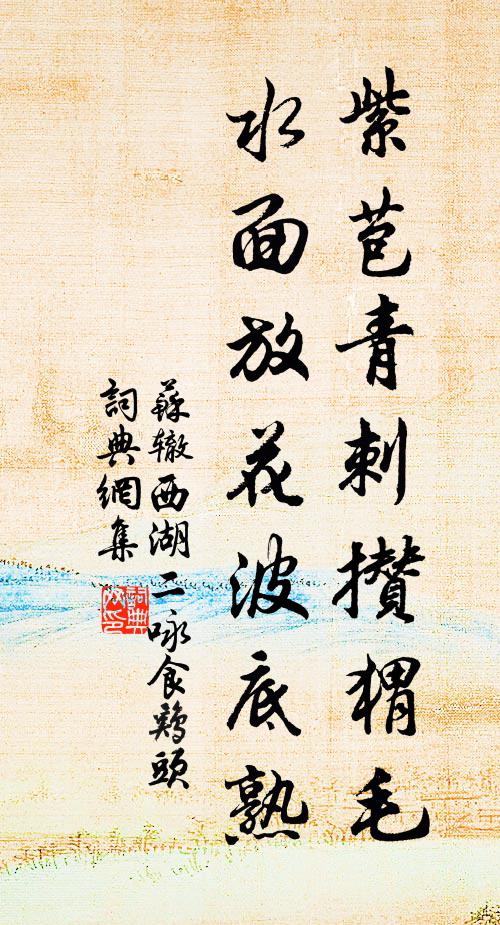 紫苞青刺攢猬毛
水面放花波底熟
蘇辙西湖二咏食鷄頭
詞典網集